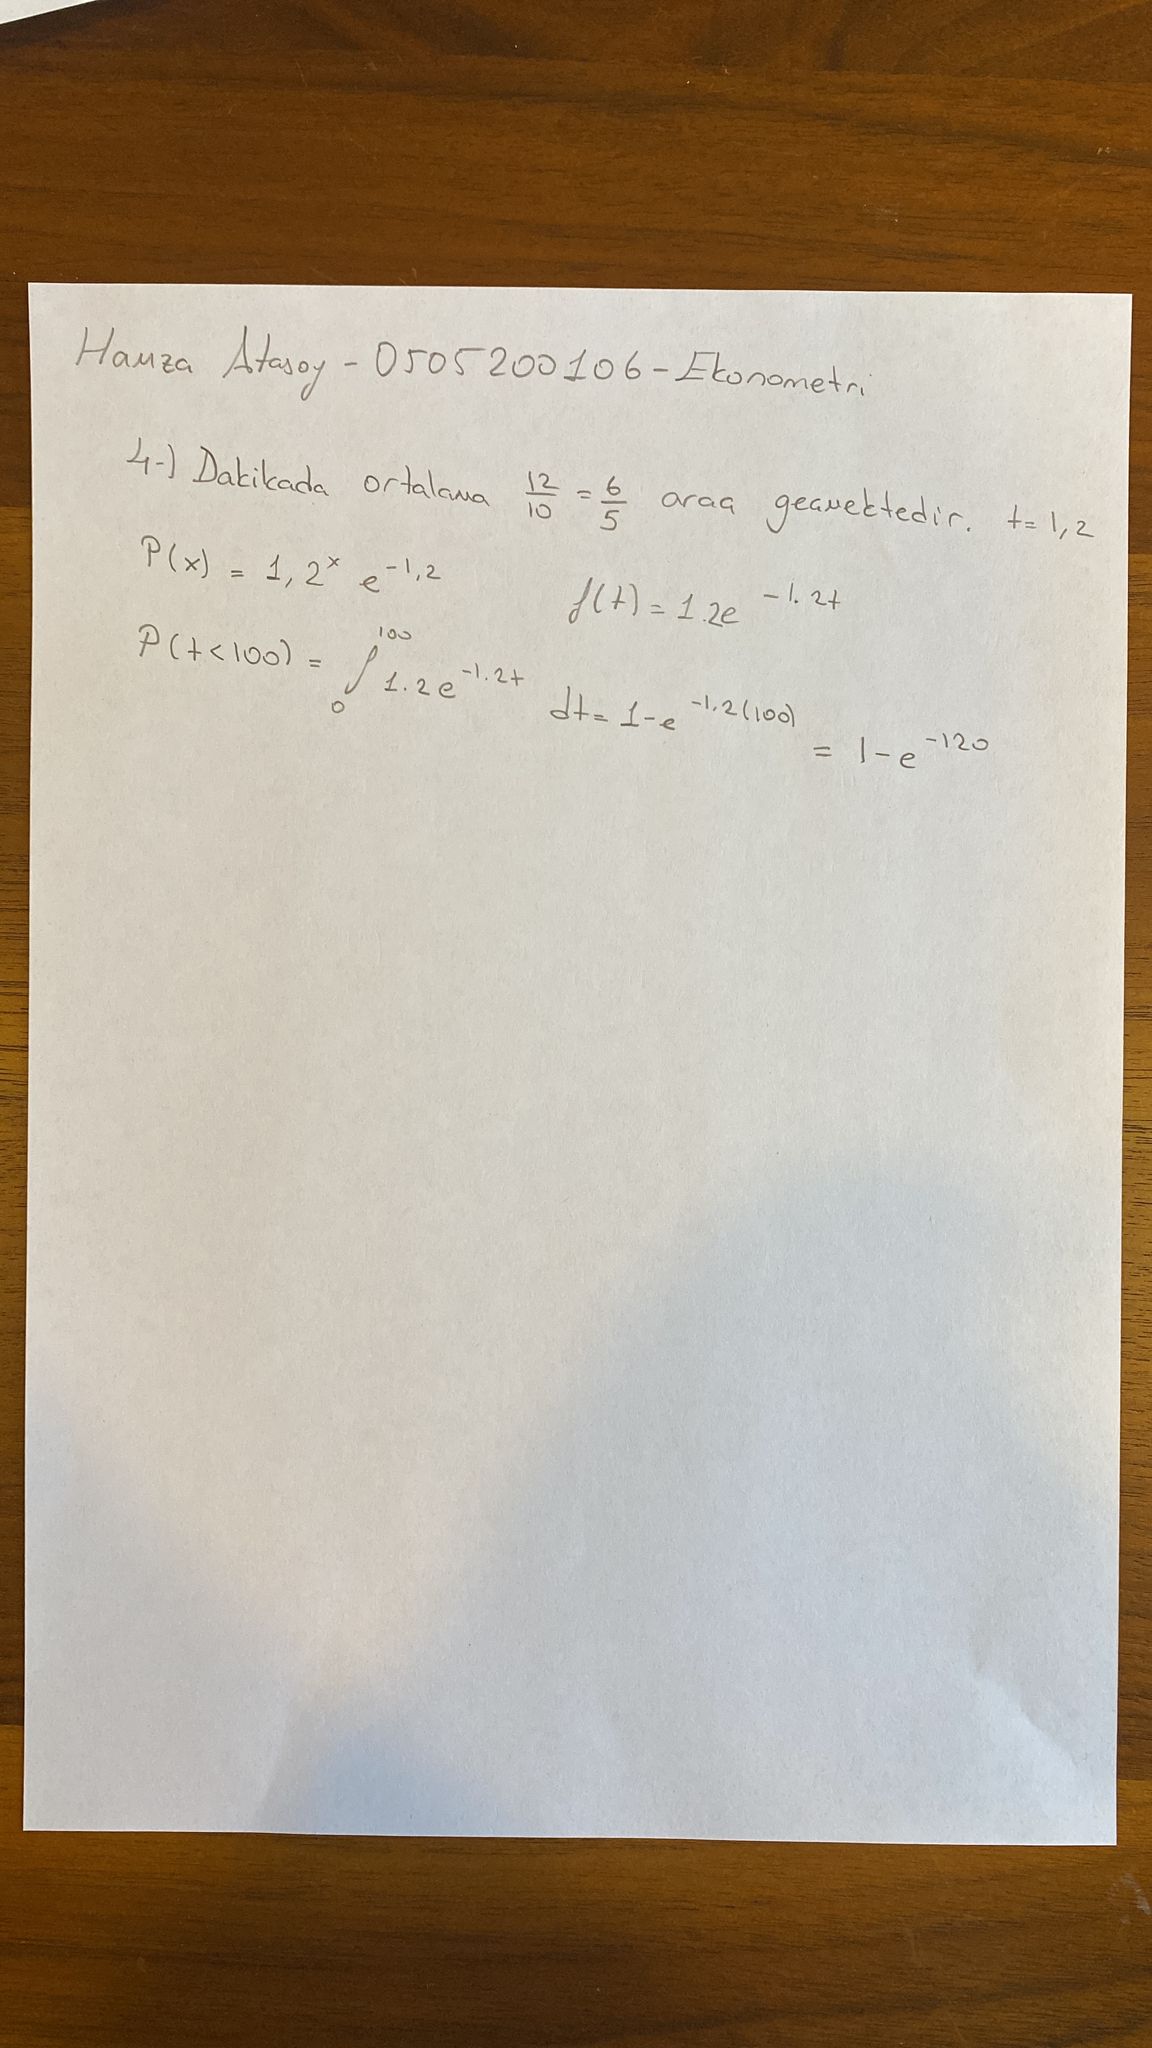 Hamza Atasoy - 0505200106 - Ekonometri
4-) Dakikada ortalama 12/10 = 6/5 araç geçmektedir. t = 1,2
P(x) = 1,2^x e^-1,2 f(t) = 1.2e^-1.2t
P(t<100) = ∫_0^100 1.2e^-1.2t dt = 1-e^-1,2(100) = 1-e^-120